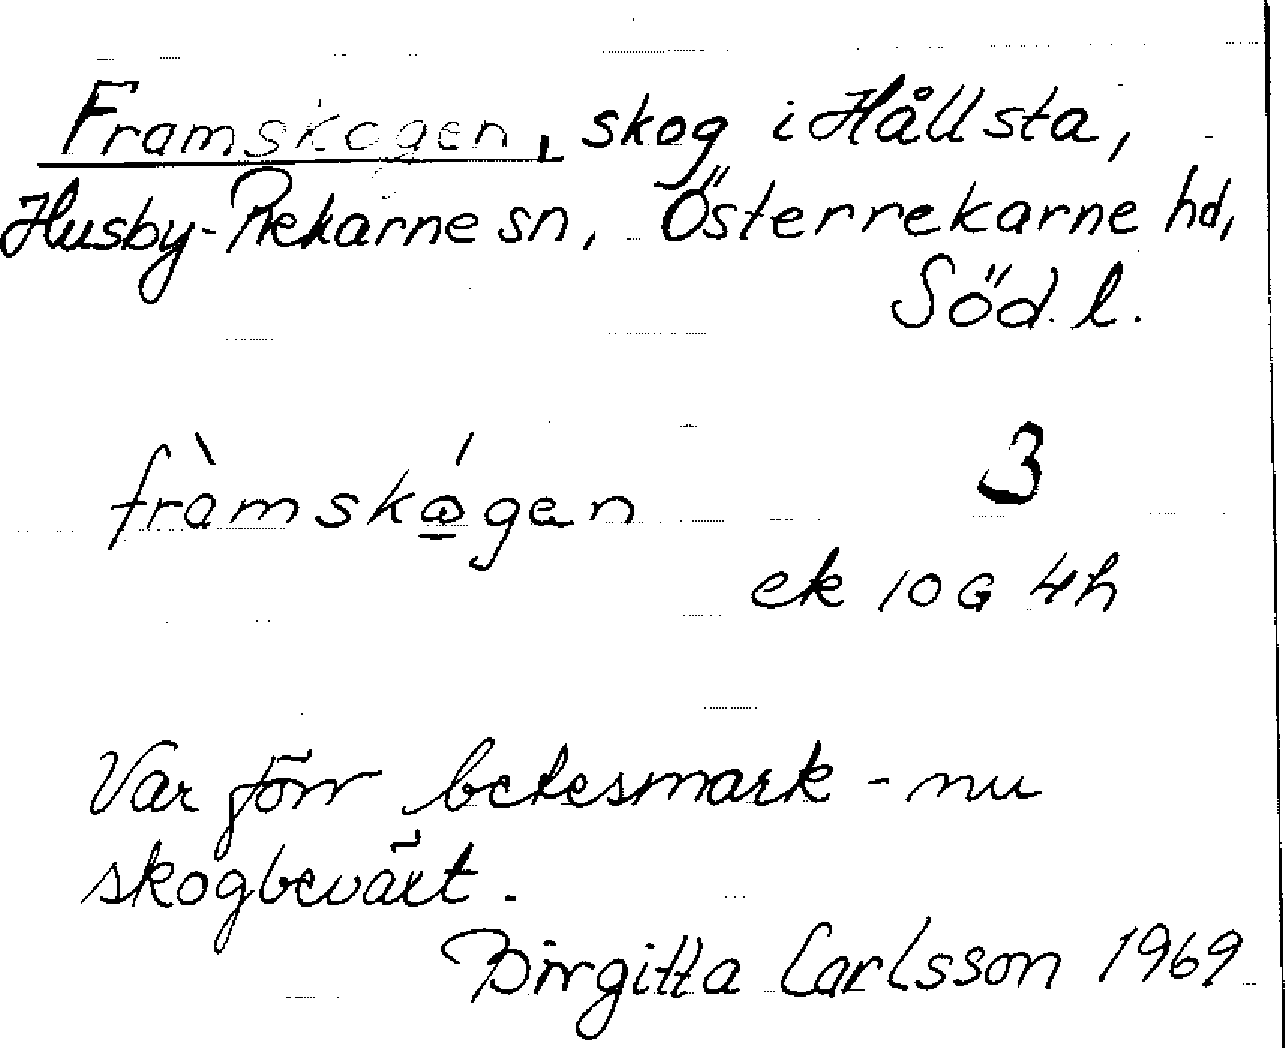 Framskogen, skog i Hållsta,
Husby-Rekarne sn, Österrekarne hd,
Söd. l.
fràmskǻgen
3
ek 10 G 4h
Var förr betesmark - nu
skogbeväxt.
Birgitta Carlsson 1969